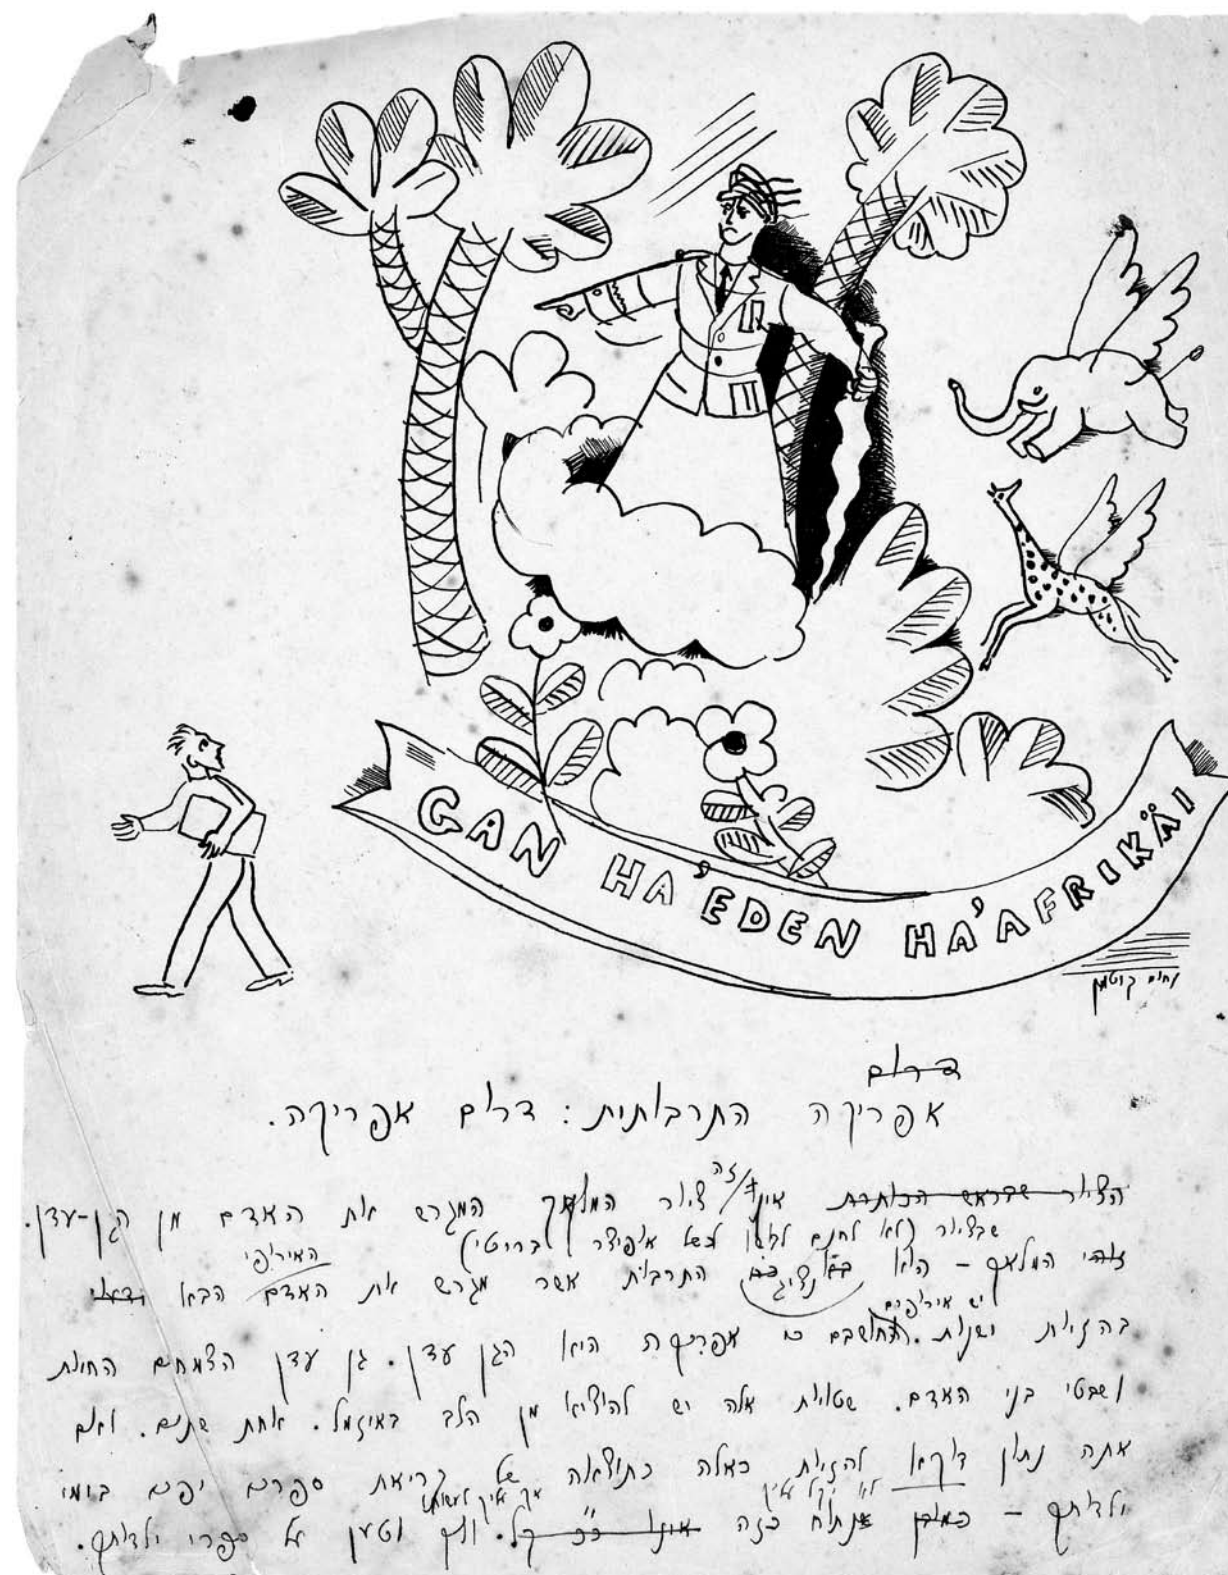 GAN HA'EDEN HA'AFRIKÄI
נחום גוטמן
דרום
אפריקה התרבותית: דרום אפריקה.
הציור שבראש הכותרת אינו זה ציור המלאך המגרש את האדם מן הגן-עדן.
שבציור (לא לחנם לבוש לבוש אופיצר בריטי)
האירופי
זהו המלאך – הוא נציג התרבות אשר מגרש את האדם הבא
יש אירופים
בהזיות ישנות. החושבים כי אפריקה היא הגן עדן. גן עדן הצמחים החיות
ושבטי בני האדם. שטויות אלה יש להוציא מן הלב באיזמל. אחת שתים. ואם
אתה נתון דוקא להזיות כאלה כתוצאה של קריאת ספרים יפים בימי
לא יקל עליך
אך עליך לעשותו
ילדותך – כמובן נתוח כזה אינו כ"כ קל. וטען על ספרי ילדותך.